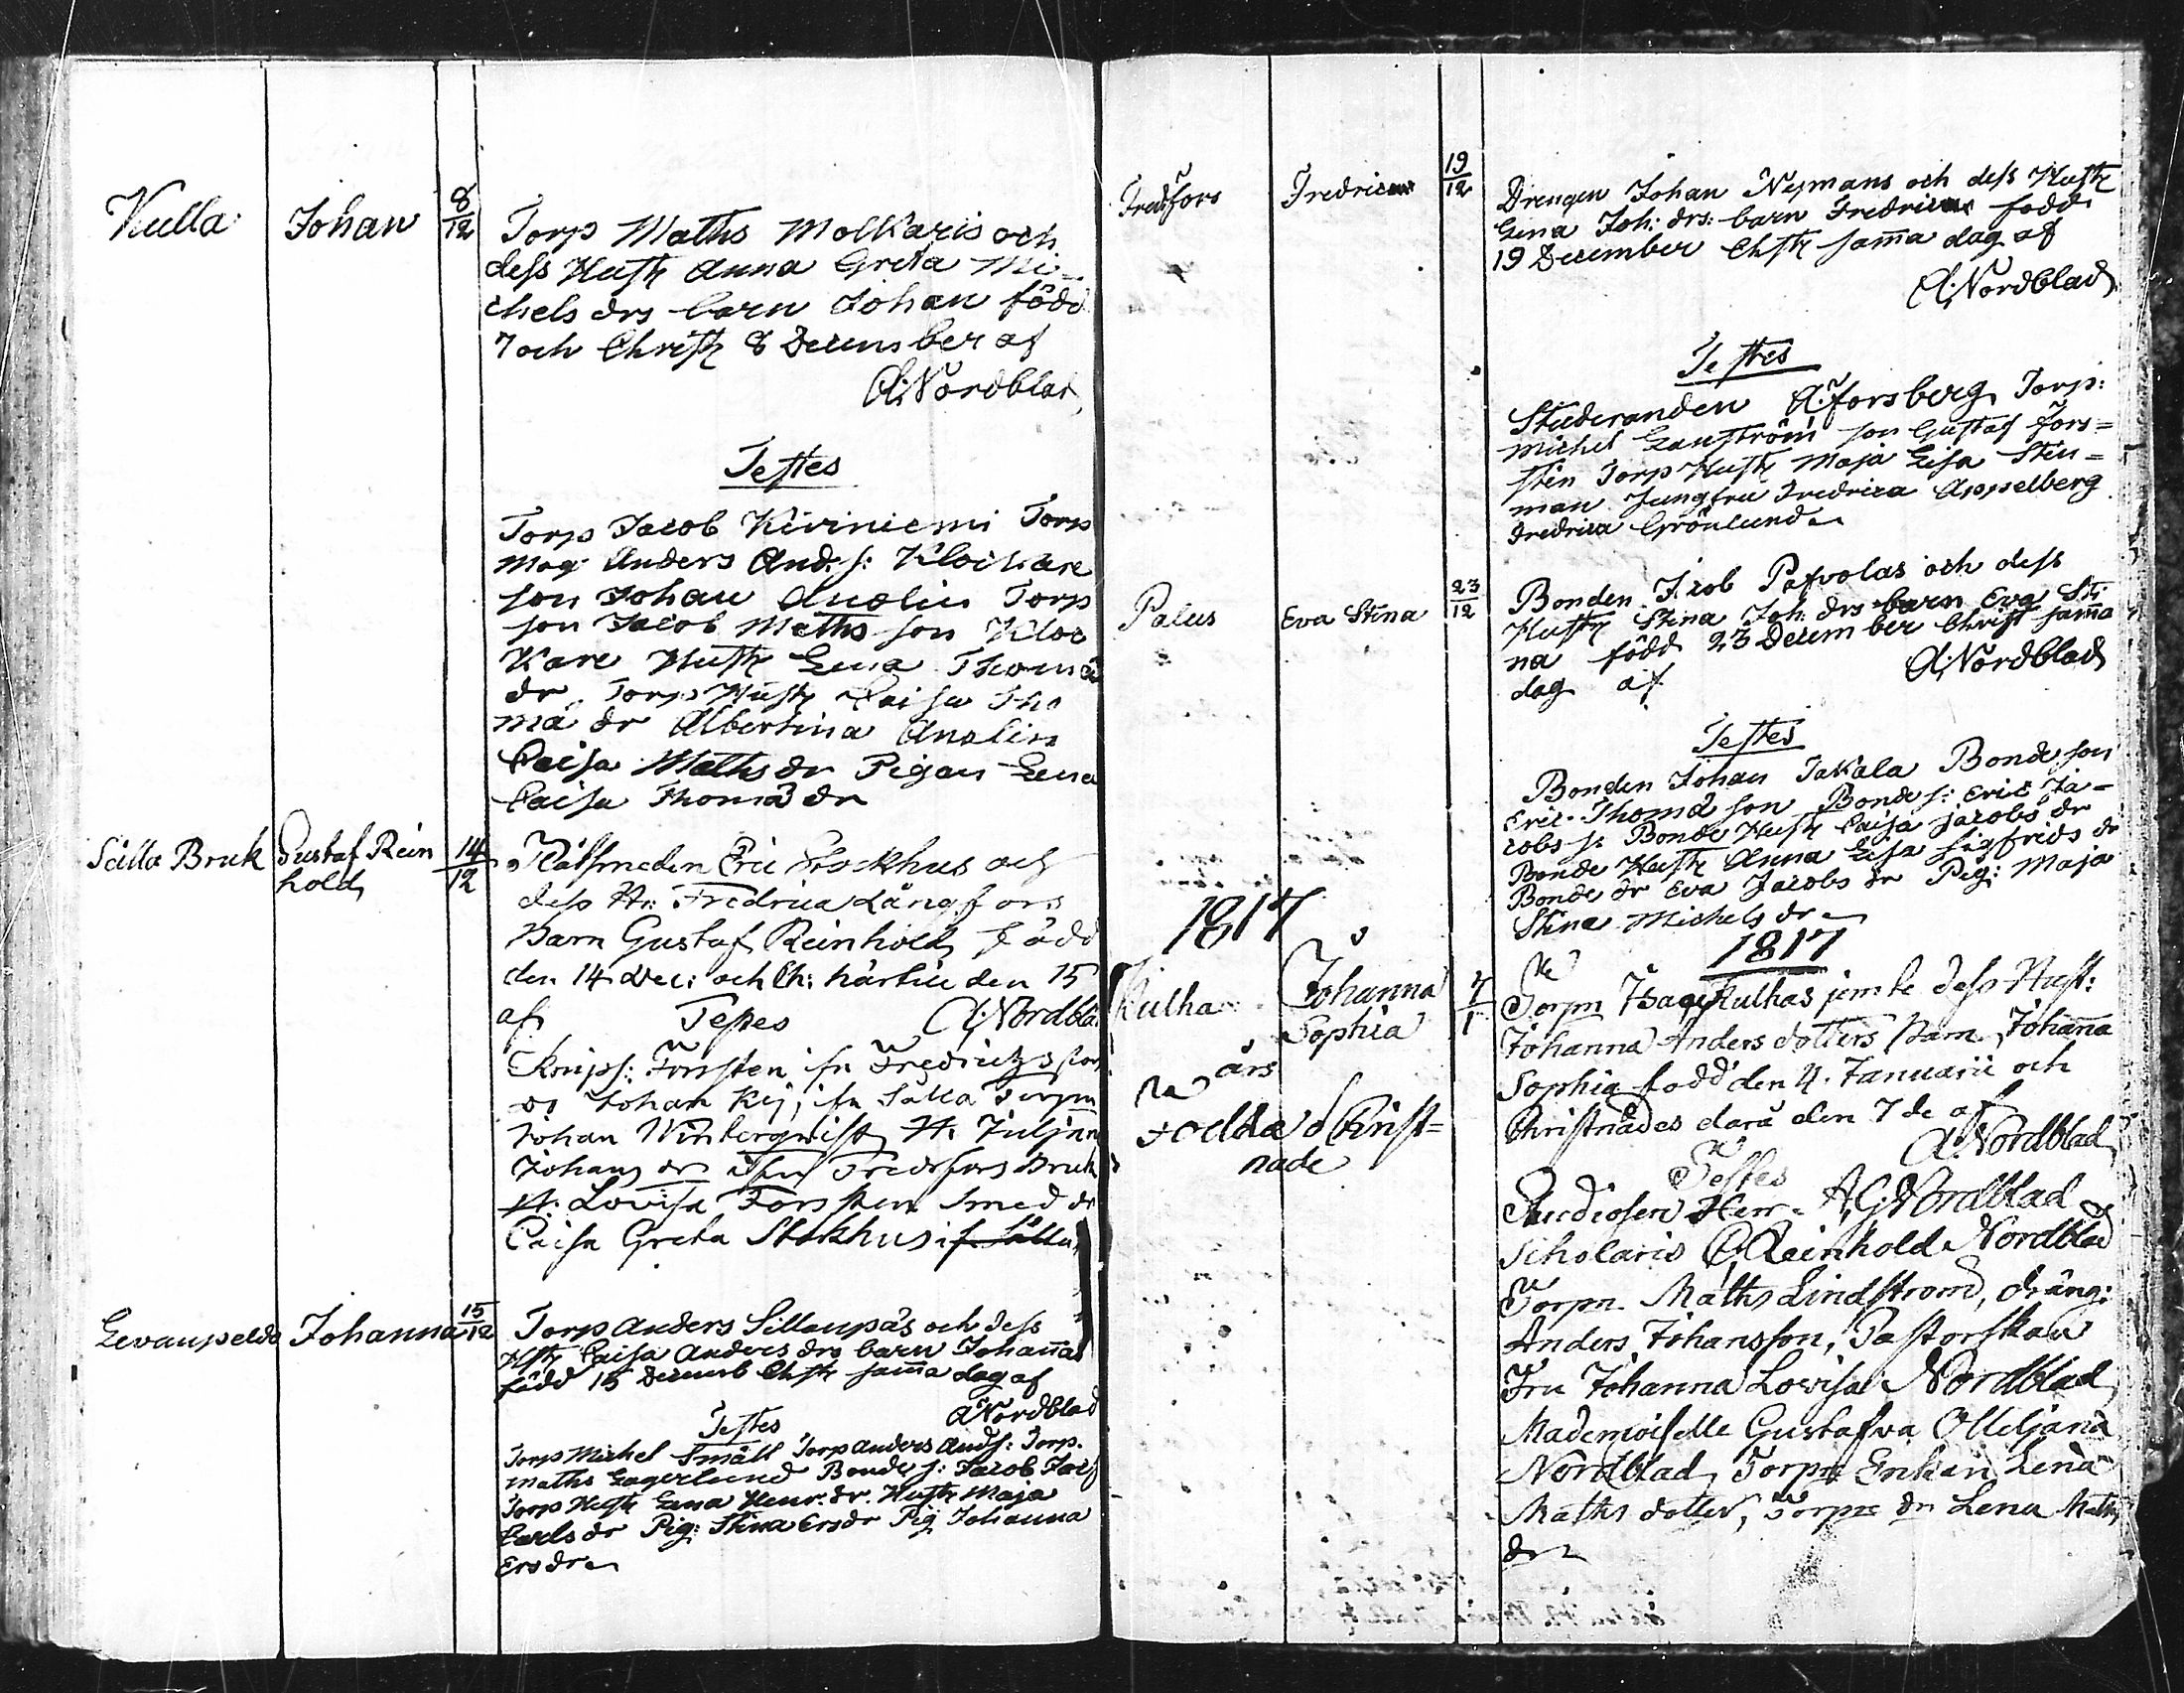 Kulla Johan 8/12 Torp Maths Molkaris och
dess Hustr Anna Greta Mi-
chels drs barn Johan född
7 och Christr 8 December af
A:Nordblad
Testes
Torp Jacob Kiviniemi Torp
Mag Anders And: s: Klockare
son Johan Analin Torp
son Jacob Maths son Kloc
Kare Hustr Lena Thoma
dr Torp Hustr Caisa Tho
mä dr Albertina Analin
Caisa Maths dr Pigan Lena
Caisa Thomä dr
Sälla Bruk Gustaf Rein 14/12 Eric Stockhus och
hold dess H: Fredrica Långfors
Barn Gustaf Reinhold född
den 14 Dec: och Ch: härtill den 15
af Testes A:Nordblad
Forssten ifr Fredrichsfors
Johan ifr Sälla Torpn
Johan Winterqvist H: Juljana
Johans dr ifrn Fredrfors Bruk
H: Lovisa Forsten Smed dr
Caisa Greta Stokhus if Sälla
Levanpeldo Johanna 15/12 Torp Anders Sillanpäs och dess
Hstr Caisa Anders drs barn Johannas
född 15 Decemb Chstr samma dag af
A:Nordblad
Testes
Torp Michel Småll Torp Anders Ands: Torp.
Maths Lagerlund Bonde s: Jacob Jacs
Torp Hustr Lena Henr: dr. Hustr Maja
Carls dr Pig: Stina Ersdr Pig Johanna
Ersdr
Fredrfors Fredrica 19/12 Drengen Johan Nymans och dess Hustr
Lena Joh: drs: barn Fredrica född
19 December Chstr samma dag af
A:Nordblad
Testes
Studeranden A:Forsberg Torp:
Michel Langström son Gustaf Fors=
sten Torp Hustr Maja Lisa Sten=
man Jungfru Fredrica Appelberg
Fredrica Grönlund
Palus Eva Stina 23/12 Bonden Jacob Pafvolas och dess
Hustr Stina Joh: drs barn Eva Sti
na född 23 December Christ samma
dag af A:Nordblad
Testes
Bonden Johan Jakala Bonde son
Eric Thomä son Bonde s: Eric Ja-
cobs s: Bonde Hustr Caisa Jacobs dr
Bonde Hustr Anna Lisa Sigfrids dr
Bonde dr Eva Jacobs dr Pig: Maja
Stina Michels dr
1817
1817
Kulha Johanna 4/1 Torpn Isac Kulhas jemte dess Hust:
Sophia Johanna Anders dotters Barn Johanna
Sophia född den 4. Januarii och
Christnades darå den 7de af
A:Nordblad
års
Födda o Christ=
nade
Testes
Studiosen Herr A,G:Nordblad
Scholaris C,Reinhold Nordblad
Torpn Maths Lindström, dräng:
Anders Johansson, Pastorskan
Fru Johanna Lovisa Nordblad
Mademoiselle Gustafva Ottiljana
Nordblad, Torpn Enkan Lena
Maths dotter, Torpre dr Lena Maths
dr